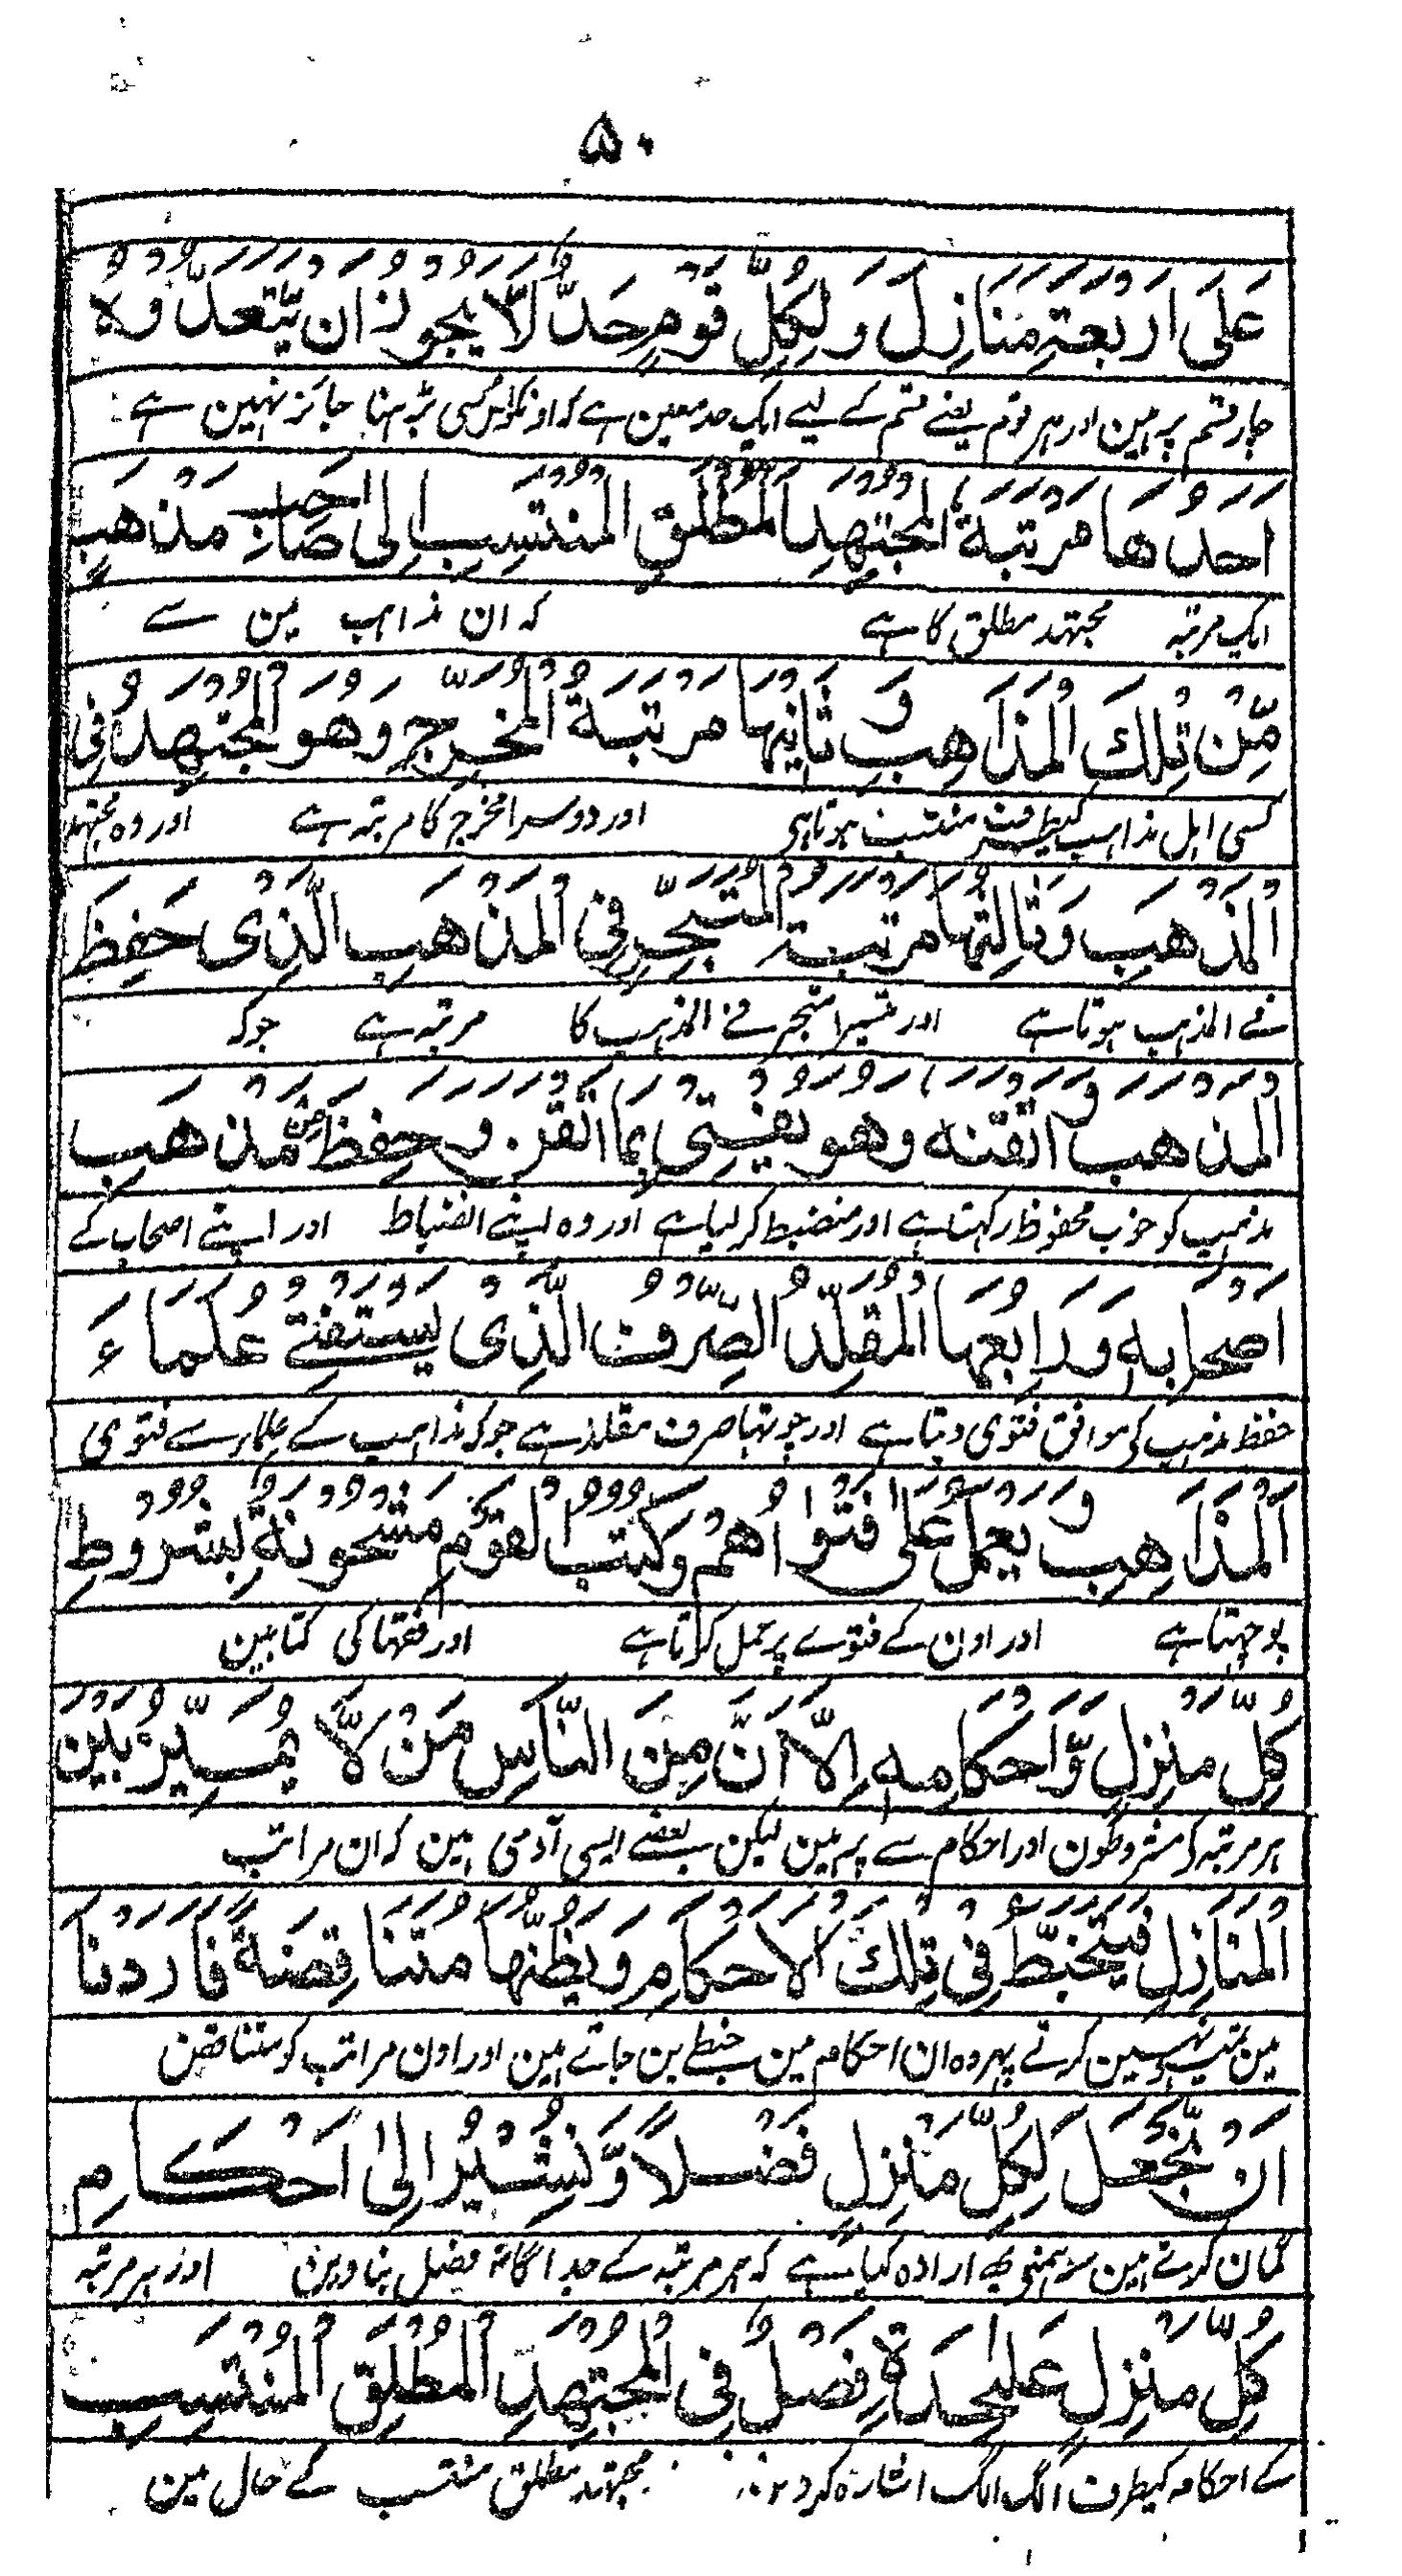 ۵۰
عَلَى اَرْبَعَةِ مَنَازِلَ وَلِكُلِّ قَوْمٍ حَدٌّ لَّا يَجُوْزُ اَنْ يَّتَعَدَّوْهُ
چار قسم پر ہین اور ہر قوم یعنے قسم کے لیے ایک حد معین ہے کہ اونکو اس سی بڑہنا جائز نہین ہے
اَحَدُهَا مَرْتَبَةُ الْمُجْتَهِدِ الْمُطْلَقِ الْمُنْتَسِبِ اِلٰى صَاحِبِ مَذْهَبٍ
ایک مرتبہ مجتہد مطلق کا ہے کہ ان مذاہب مین سے
مِّنْ تِلْكَ الْمَذَاهِبِ وَثَانِيْهَا مَرْتَبَةُ الْمُخَرِّجِ وَهُوَ الْمُجْتَهِدُ فِى
کسی اہل مذاہب کیطرف منتسب ہوتا ہی اور دوسرا مخرج کا مرتبہ ہے اور وہ مجتہد
الْمَذْهَبِ وَثَالِثُهَا مَرْتَبَةُ الْمُتَبَحِّرِ فِى الْمَذْهَبِ الَّذِى حَفِظَ
فے المذہب ہوتا ہے اور تیسرا متبحر فے المذہب کا مرتبہ ہے جو کہ
الْمَذْهَبَ وَاَتْقَنَهُ وَهُوَ يُفْتِىْ بِمَا اَتْقَنَ وَحَفِظَ مِنْ مَّذْهَبِ
مذہب کو خوب محفوظ رکہتا ہے اور منضبط کر لیا ہے اور وہ اپنے انضباط اور اپنے اصحاب کے
اَصْحَابِهٖ وَرَابِعُهَا الْمُقَلِّدُ الصِّرْفُ الَّذِى يَسْتَفْتِىْ عُلَمَاءَ
حفظ مذہب کی موافق فتوی دیتا ہے اور چوتہا صرف مقلد ہے جو کہ مذاہب کے علماء سے فتوی
الْمَذَاهِبِ وَيَعْمَلُ عَلٰى فَتْوَاهُمْ وَكُتُبُ الْقَوْمِ مَشْحُوْنَةٌ بِشُرُوْطِ
پوچہتا ہے اور اون کے فتوے پر عمل کرتا ہے اور فقہا کی کتابین
كُلِّ مَنْزِلٍ وَّاَحْكَامِهٖ اِلَّا اَنَّ مِنَ النَّاسِ مَنْ لَّا يُمَيِّزُ بَيْنَ
ہر مرتبہ کے شروطون اور احکام سے پر ہین لیکن بعضے ایسی آدمی ہین کہ ان مراتب
الْمَنَازِلِ فَيَتَخَبَّطُ فِىْ تِلْكَ الْاَحْكَامِ وَيَظُنُّهَا مُتَنَاقِضَةً فَاَرَدْنَا
مین تمیز نہین کرتے پہر وہ ان احکام مین خبطے بن جاتے ہین اور اون مراتب کو متناقض
اَنْ نَّجْعَلَ لِكُلِّ مَنْزِلٍ فَصْلًا وَّنُشِيْرُ اِلٰى اَحْكَامِ
گمان کرتے ہین سو ہمنے ارادہ کیا ہے کہ ہر مرتبہ کے جدا گانہ فصل بنا دیوین اور ہر مرتبہ
كُلِّ مَنْزِلٍ عَلٰيحِدَةٍ فَصْلٌ فِى الْمُجْتَهِدِ الْمُطْلَقِ الْمُنْتَسِبِ
کے احکام کیطرف الگ الگ اشارہ کر مجتہد مطلق منتسب کے حال مین